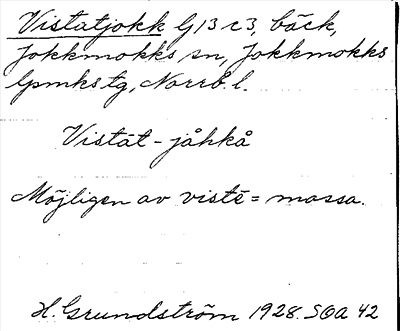 Vistatjokk G 13 c 3, bäck,
Jokkmokks sn, Jokkmokks
lpmks tg, Norrb. l.
Vistāt - jåhkå
Möjligen av vistē = massa.
H. Grundström 1928. SOA 42